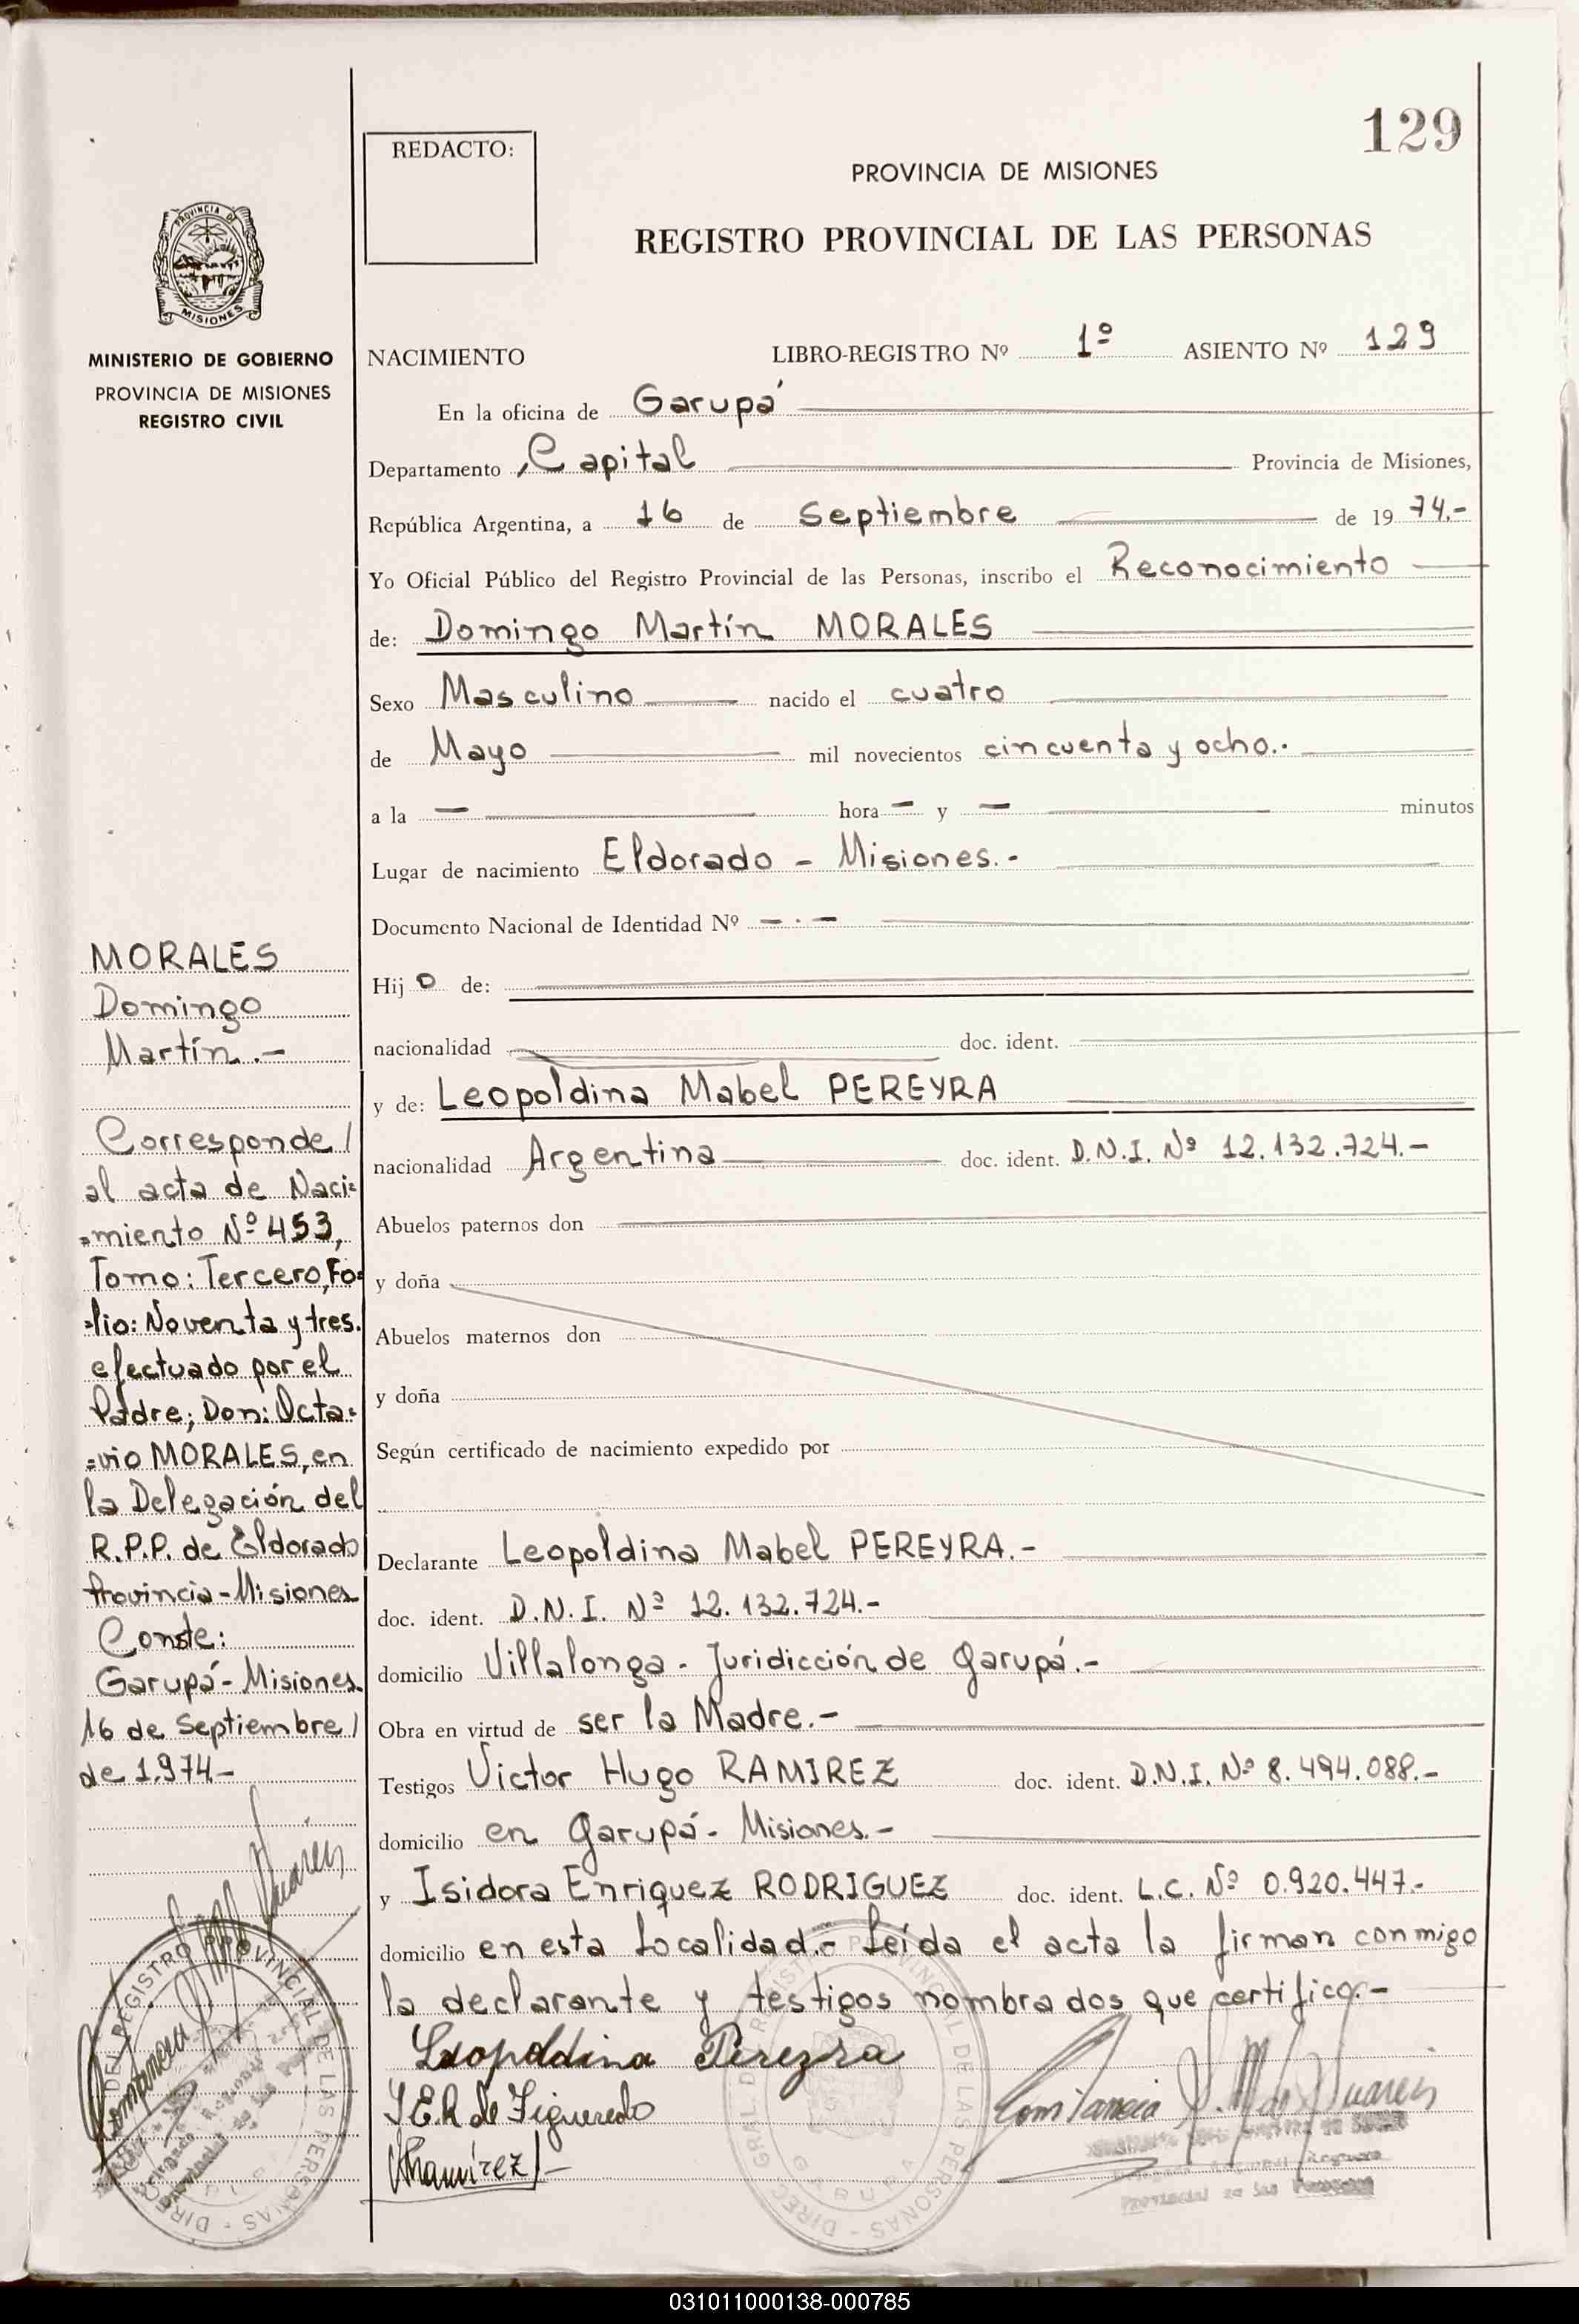 129
REDACTO:
PROVINCIA DE MISIONES
REGISTRO PROVINCIAL DE LAS PERSONAS
PROVINCIA DE
MISIONES
MINISTERIO DE GOBIERNO
PROVINCIA DE MISIONES
REGISTRO CIVIL
NACIMIENTO LIBRO-REGISTRO Nº 1º ASIENTO Nº 129
En la oficina de Garupá
Departamento Capital Provincia de Misiones,
República Argentina, a 16 de Septiembre de 1974.-
Yo Oficial Público del Registro Provincial de las Personas, inscribo el Reconocimiento
de: Domingo Martín MORALES
Sexo Masculino nacido el cuatro
de Mayo mil novecientos cincuenta y ocho.-
a la — hora — y — minutos
Lugar de nacimiento Eldorado - Misiones.-
Documento Nacional de Identidad Nº — . —
Hijo de:
nacionalidad doc. ident.
y de: Leopoldina Mabel PEREYRA
nacionalidad Argentina doc. ident. D.N.I. Nº 12.132.724.-
Abuelos paternos don
y doña
Abuelos maternos don
y doña
Según certificado de nacimiento expedido por
Declarante Leopoldina Mabel PEREYRA.-
doc. ident. D.N.I. Nº 12.132.724.-
domicilio Villalonga - Juridicción de Garupá.-
Obra en virtud de ser la Madre.-
Testigos Victor Hugo RAMIREZ doc. ident. D.N.I. Nº 8.494.088.-
domicilio en Garupá - Misiones.-
y Isidora Enriquez RODRIGUEZ doc. ident. L.C. Nº 0.920.447.-
domicilio en esta Localidad.- Leída el acta la firman conmigo
la declarante y testigos nombrados que certifico.-
Leopoldina Pereyra
I.E.R de Figueredo
VRamirez
MORALES
Domingo
Martín.-
Corresponde/
al acta de Naci=
=miento Nº 453,
Tomo: Tercero, Fo=
=lio: Noventa y tres.
efectuado por el
Padre; Don: Octa=
=vio MORALES, en
la Delegación del
R.P.P. de Eldorado
Provincia - Misiones
Conste:
Garupá - Misiones.
16 de Septiembre/
de 1.974.-
DIREC. GRAL. DEL REGISTRO PROVINCIAL DE LAS PERSONAS
GARUPA
031011000138-000785